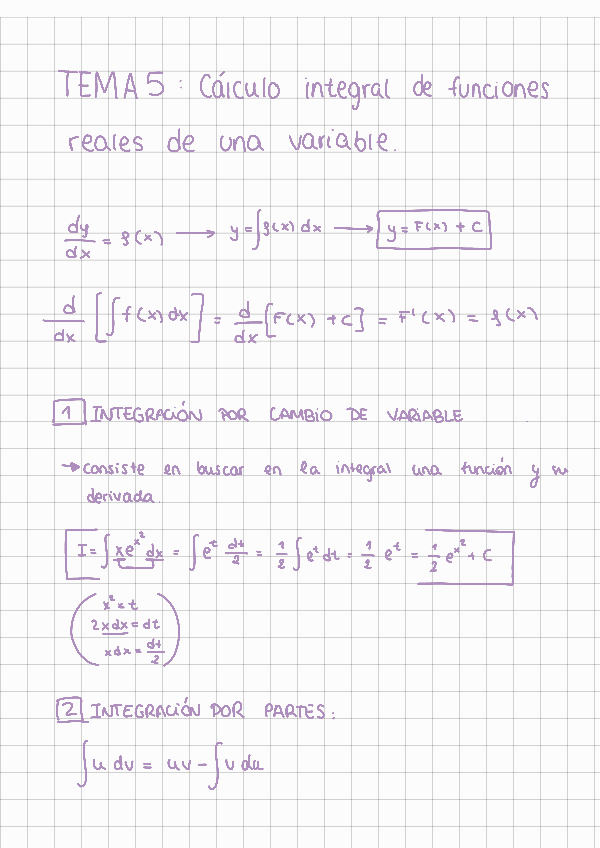 TEMA 5: Cálculo integral de funciones
reales de una variable.
dy/dx = f(x) → y = ∫f(x) dx → y = F(x) + C
d/dx [∫f(x) dx] = d/dx [F(x) + C] = F'(x) = f(x)
1 INTEGRACIÓN POR CAMBIO DE VARIABLE
→ consiste en buscar en la integral una función y su
derivada.
I = ∫xe^x² dx = ∫e^t dt/2 = 1/2 ∫e^t dt = 1/2 e^t = 1/2 e^x² + C
x² = t
2xdx = dt
xdx = dt/2
2 INTEGRACIÓN POR PARTES:
∫u dv = uv - ∫v du